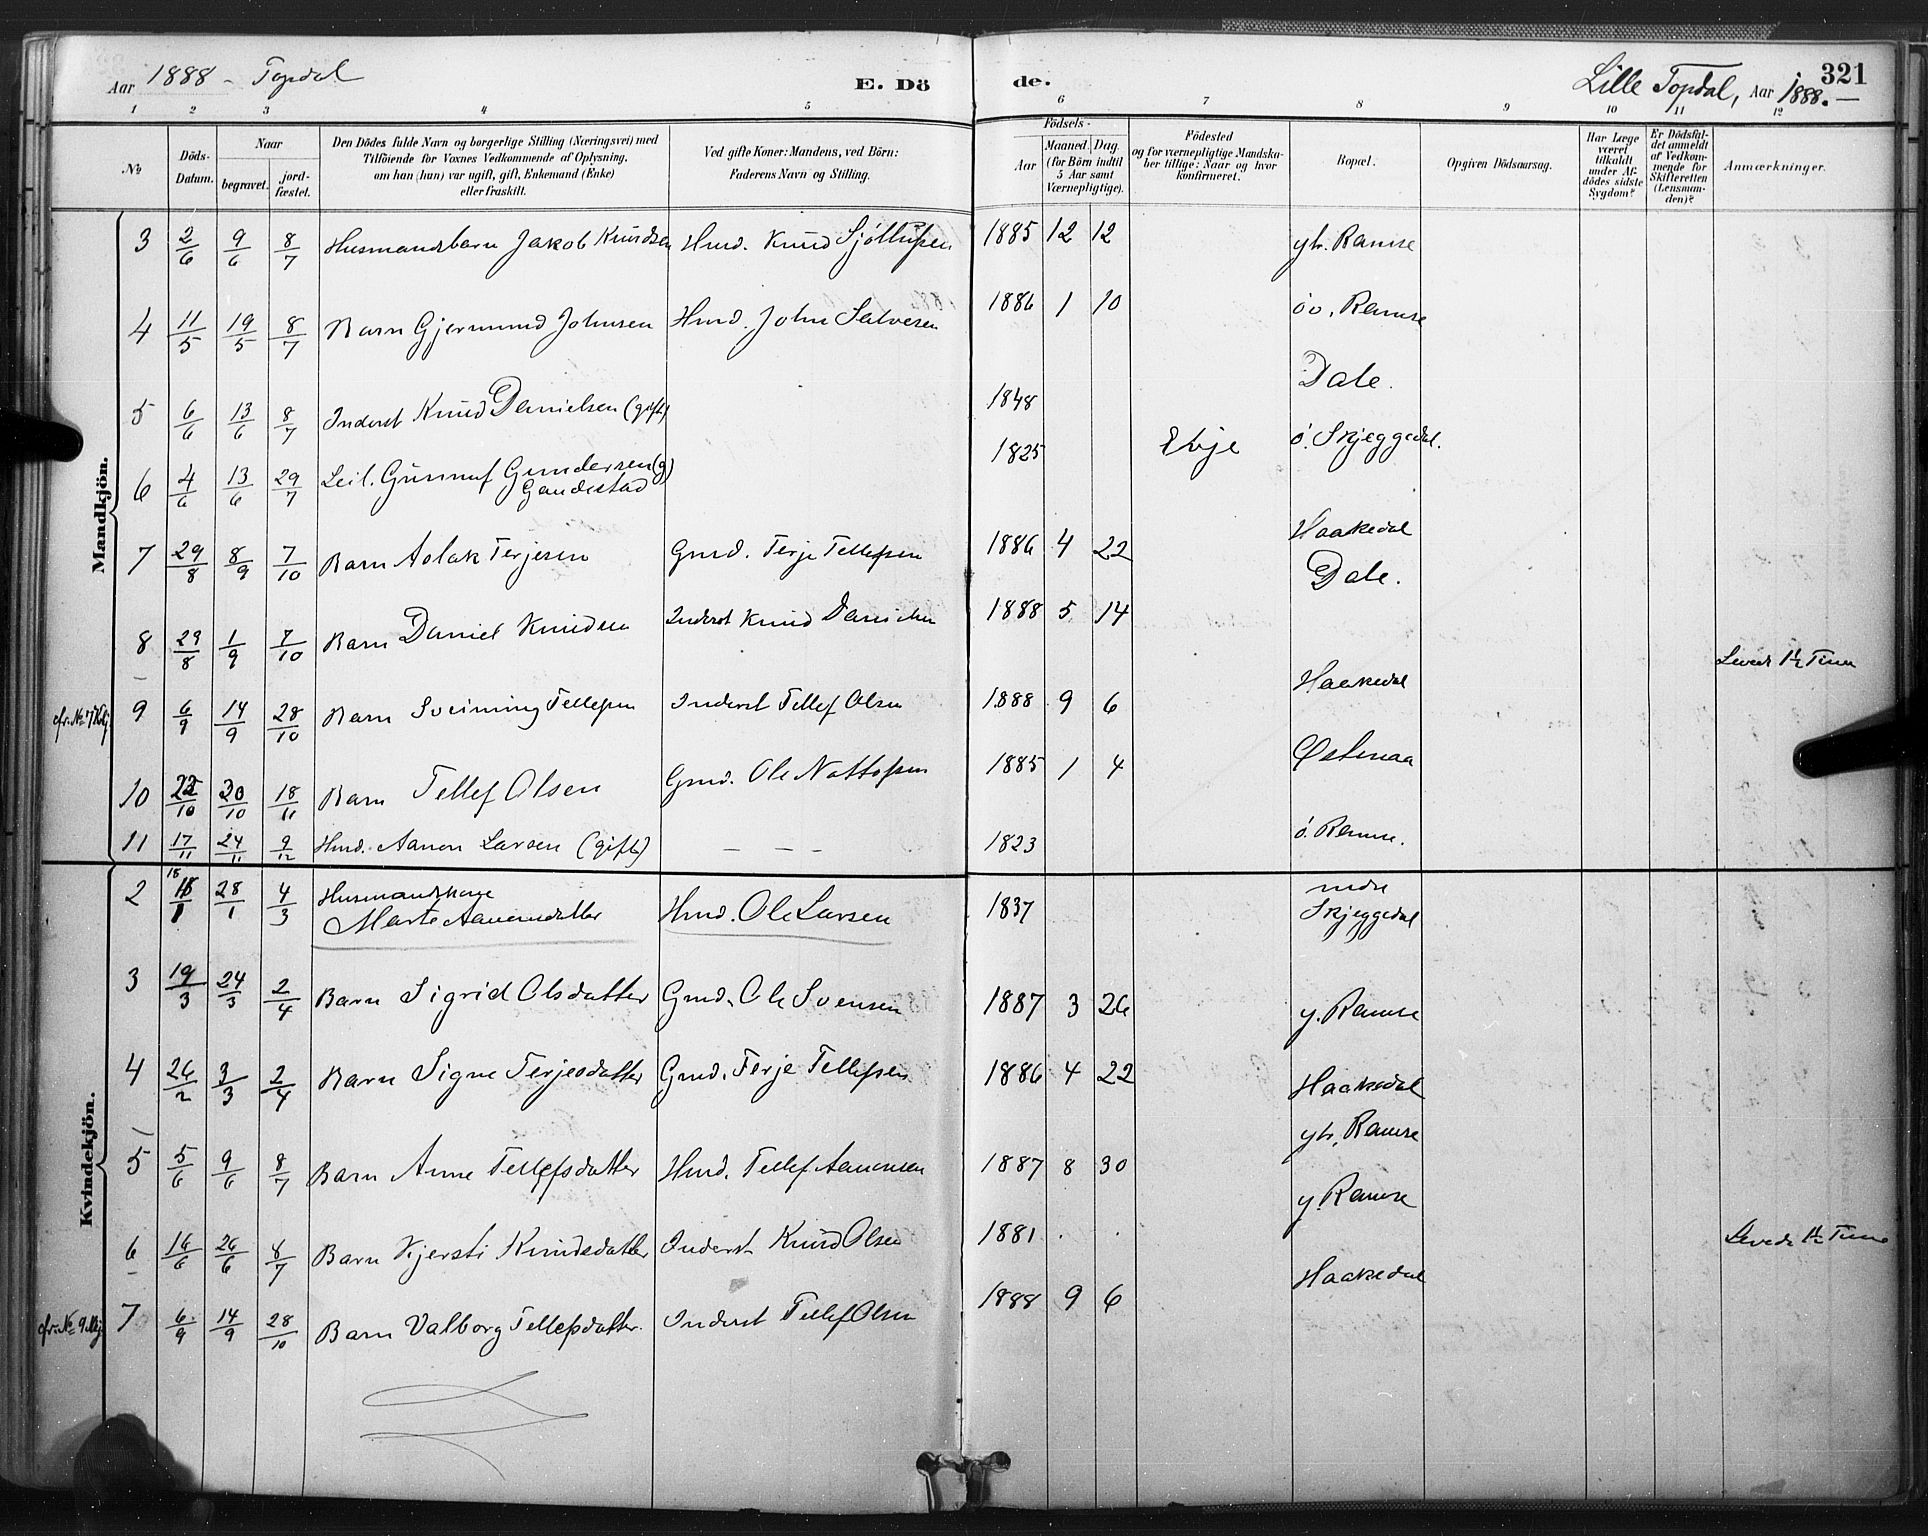 Aar 1888 – Topdal E. Dö
de. Lille Topdal, Aar 1888. — 321
1 2 3 4 5 6 7 8 9 10 11 12
No
Döds-Datum.
Naar begravet. jordfæstet.
Den Dödes fulde Navn og borgerlige Stilling (Næringsvei) med
Tilföiende for Voxnes Vedkommende af Oplysning,
om han (hun) var ugift, gift, Enkemand (Enke)
eller fraskilt.
Ved gifte Koner: Mandens, ved Börn:
Faderens Navn og Stilling.
Födsels-
Aar Maaned. Dag.
(for Börn indtil
5 Aar samt
Værnepligtige).
Födested
og for værnepligtige Mandska-
ber tillige: Naar og hvor
konfirmeret.
Bopæl.
Opgiven Dödsaarsag.
Har Læge
været
tilkaldt
under Af-
dödes sidste
Sygdom?
Er Dödsfal-
det anmeldt
af Vedkom-
mende for
Skifteretten
(Lensman-
den)?
Anmærkninger.
Mandkjön.
3 2/6 9/6 8/7 Husmandsbarn Jakob Knudsen Hmd. Knud Sjøttufsen 1885 12 12 yh. Ramse
4 11/5 19/5 8/7 Barn Gjermund Johnsen Hmd. John Salvesen 1886 1 10 øv. Ramse
5 6/6 13/6 8/7 Inderst Knud Danielsen (gift) 1848 Dale.
6 4/6 13/6 29/7 Leil. Gunnuf Gundersen (g) Gaudestad 1825 Evje ö. Skjeggedal.
7 29/8 8/9 7/10 Barn Aslak Terjesen Gmd. Terje Tellefsen 1886 4 22 Haakedal
8 29/8 1/9 7/10 Barn Daniel Knudsen Inderst Knud Danielsen 1888 5 14 Dale.
cfr. No 7 Kvkj. 9 6/9 14/9 28/10 Barn Sveinung Tellefsen Inderst Tellef Olsen 1888 9 6 Haakedal Levede 1½ Time
10 /10 20/10 18/11 Barn Tellef Olsen Gmd. Ole Nottofsen 1885 1 4 Østenaa
11 17/11 24/11 9/12 Hmd. Aanon Larsen (gift) — — — 1823 ö. Ramse.
Kvindekjön.
2 18/1 28/1 4/3 Husmandskone Marte Aanonsdatter Hmd. Ole Larsen 1837 nedre Skjeggedal
3 19/3 24/3 2/4 Barn Sigrid Olsdatter Gmd. Ole Svensen 1887 3 26 y. Ramse
4 26/2 3/3 2/4 Barn Signe Terjesdatter Gmd. Terje Tellefsen 1886 4 22 Haakedal
5 5/6 9/6 8/7 Barn Anne Tellefsdatter Hmd. Tellef Aanonsen 1887 8 30 yh. Ramse
6 16/6 26/6 8/7 Barn Kjersti Knudsdatter Inderst Knud Olsen 1881 . . y. Ramse
cfr. No 9 Mkj. 7 6/9 14/9 28/10 Barn Valborg Tellefsdatter. Inderst Tellef Olsen 1888 9 6 Haakedal Levede 1½ Time